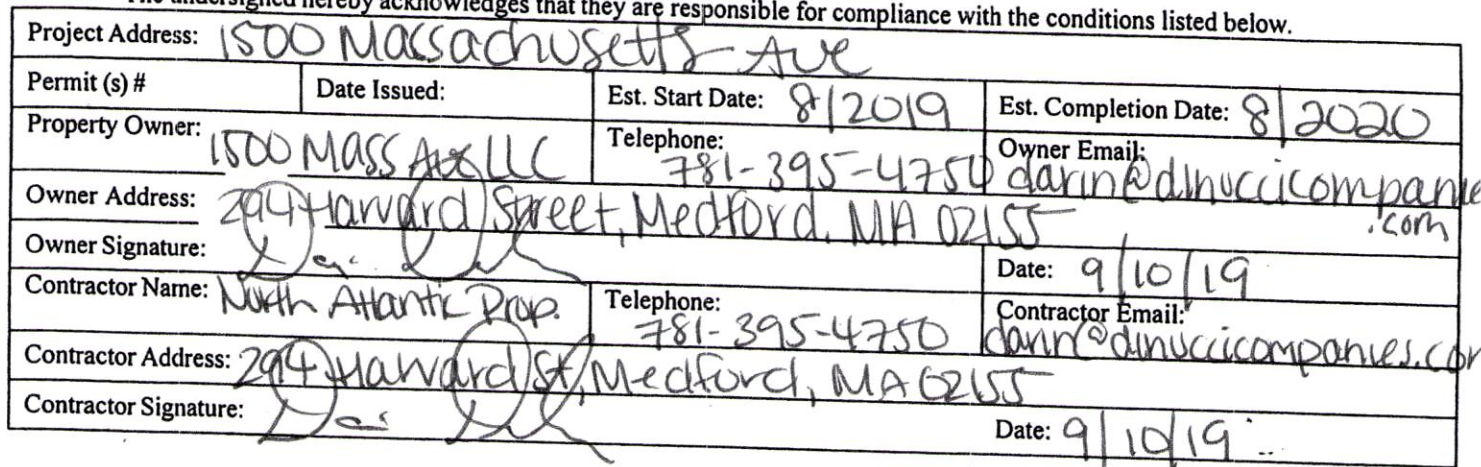 The undersigned hereby acknowledges that they are responsible for compliance with the conditions listed below.
Project Address: 1500 Massachusetts Ave
Permit (s) # Date Issued: Est. Start Date: 8/2019 Est. Completion Date: 8/2020
Property Owner: 1500 Mass Ave LLC Telephone: 781-395-4750 Owner Email: darin@dinuccicompanie
.com
Owner Address: 294 Harvard Street, Medford, MA 02155
Owner Signature: Date: 9/10/19
Contractor Name: North Atlantic Prop. Telephone: 781-395-4750 Contractor Email: darin@dinuccicompanies.com
Contractor Address: 294 Harvard St, Medford, MA 02155
Contractor Signature: Date: 9/10/19